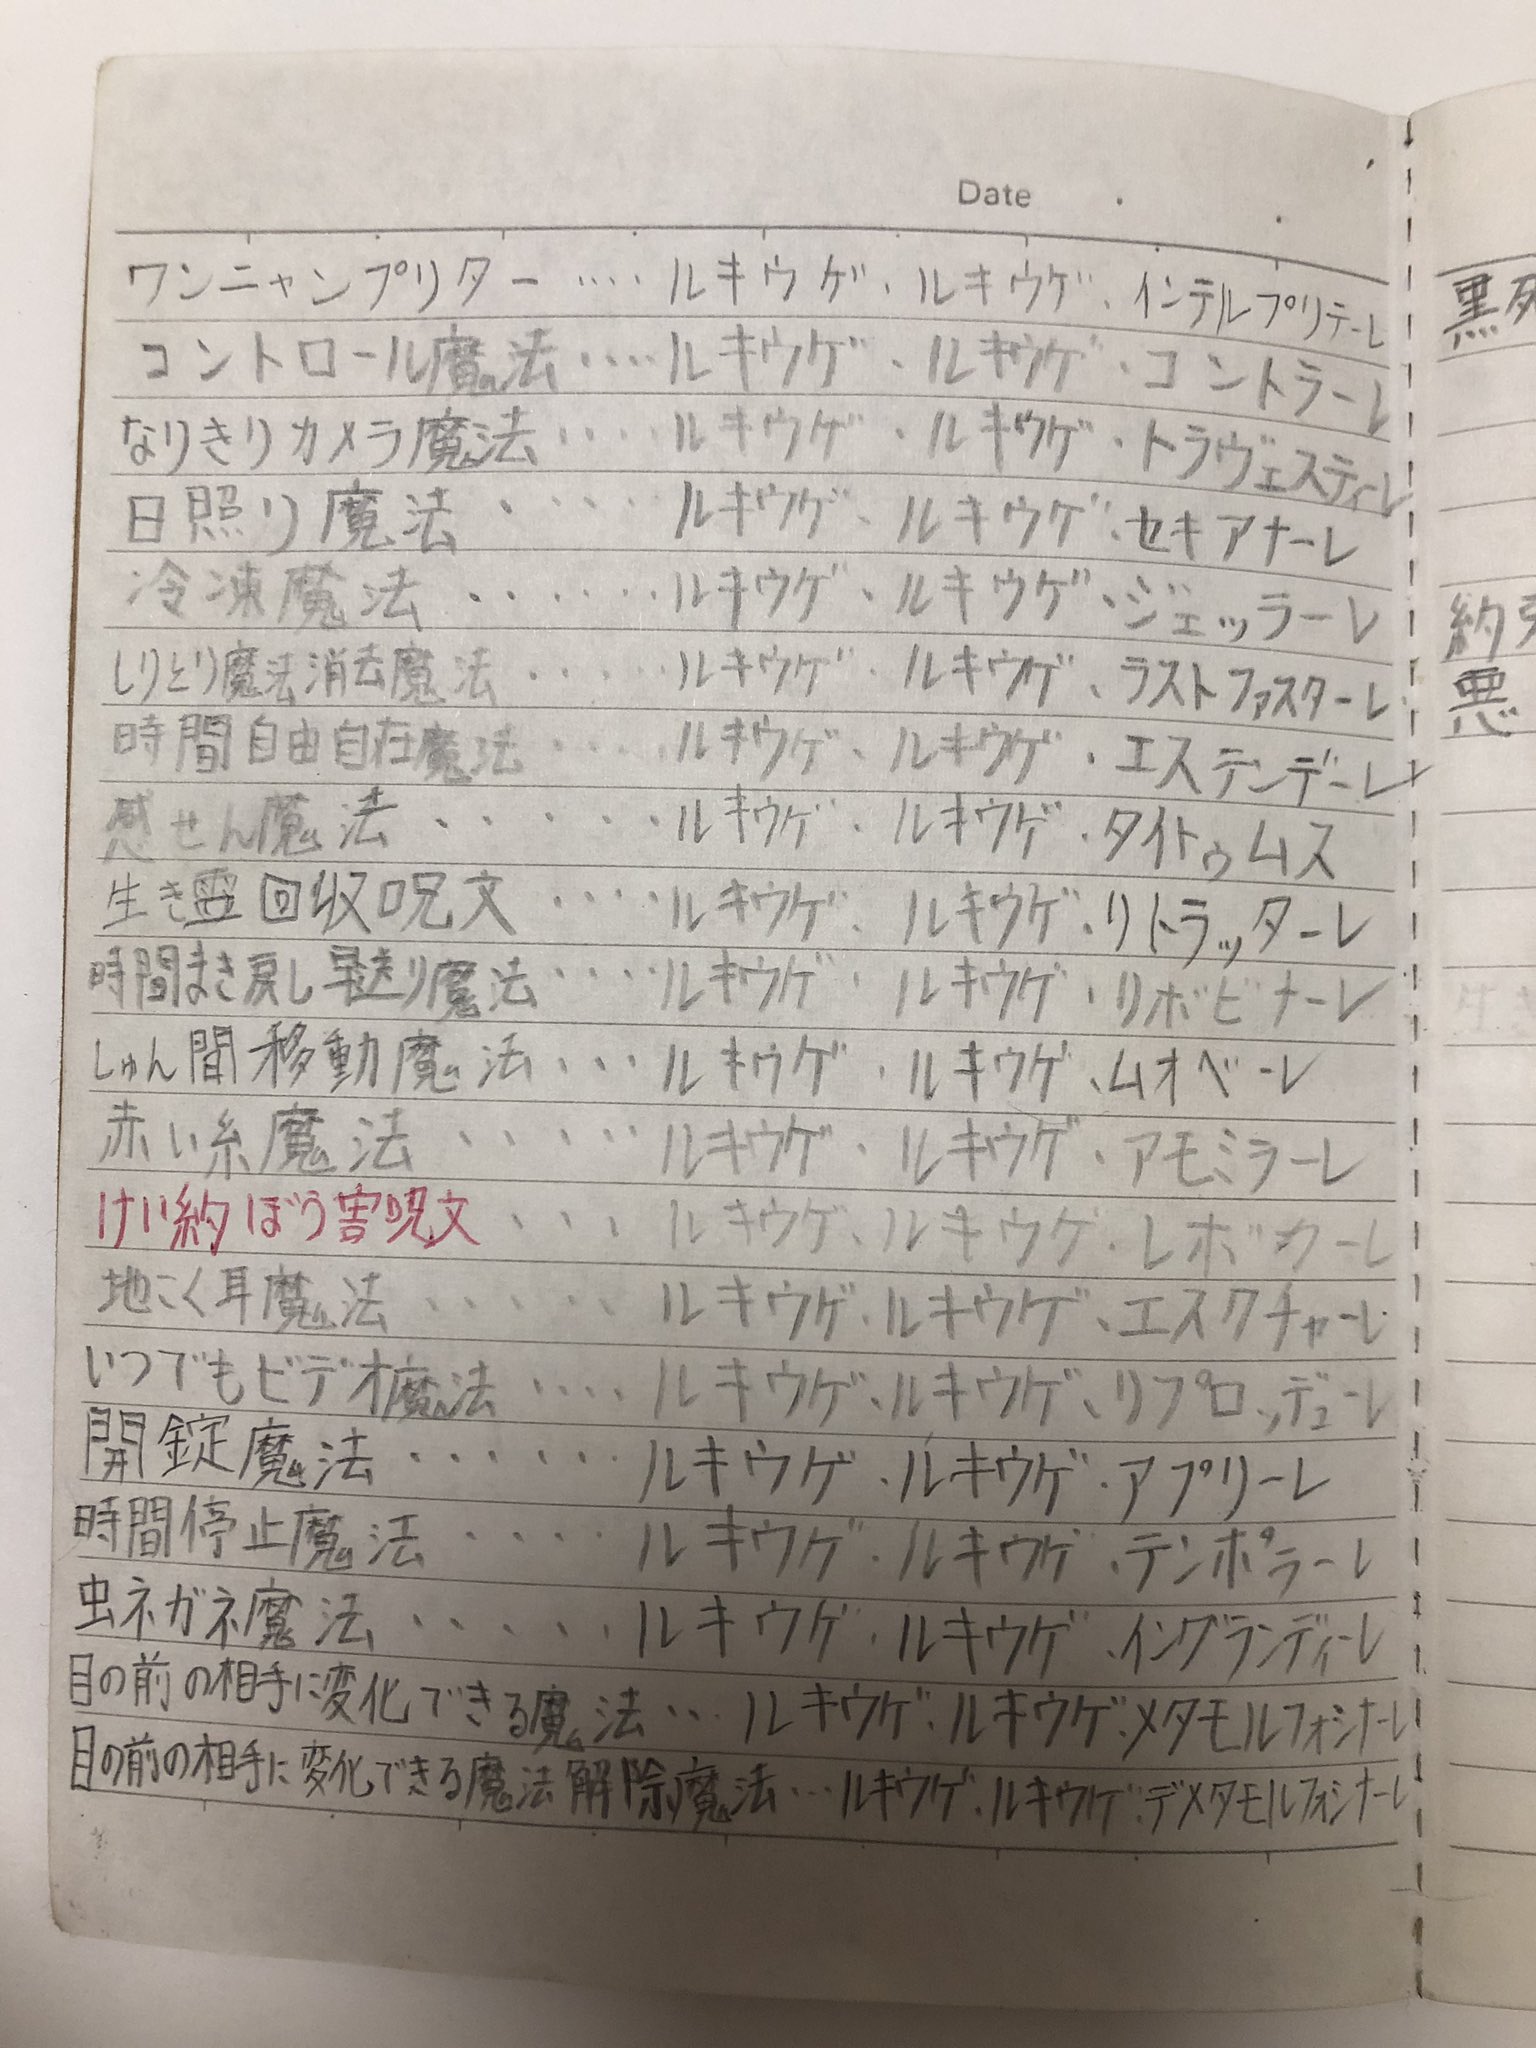 Date
ワンニャンプリター‥‥ルキウゲ、ルキウゲ、インテルプリテーレ
コントロール魔法‥‥ルキウゲ、ルキウゲ、コントラーレ
なりきりカメラ魔法‥‥ルキウゲ、ルキウゲ、トラヴェスティーレ
日照り魔法・‥‥ルキウゲ、ルキウゲ、セキアナーレ
冷凍魔法・・・・・・ルキウゲ、ルキウゲ、ジェッラーレ
しりとり魔法消去魔法・・・・・ルキウゲ、ルキウゲ、ラストファスターレ
時間自由自在魔法・・・・・ルキウゲ、ルキウゲ、エステンデーレ
感せん魔法・・・・・・ルキウゲ、ルキウゲ、タイトゥムス
生き霊回収呪文・・・・・ルキウゲ、ルキウゲ、リトラッターレ
時間まき戻し早送り魔法・・・・ルキウゲ、ルキウゲ、リボビナーレ
しゅん間移動魔法・・・・ルキウゲ、ルキウゲ、ムオベーレ
赤い糸魔法・・・・・・ルキウゲ、ルキウゲ、アモミラーレ
けい約ぼう害呪文・・・ルキウゲ、ルキウゲ、レボカーレ
地こく耳魔法・・・・・・ルキウゲ、ルキウゲ、エスクチャーレ
いつでもビデオ魔法・・・・ルキウゲ、ルキウゲ、リプロッデューレ
開錠魔法・・・・・・ルキウゲ、ルキウゲ、アプリーレ
時間停止魔法・・・・・ルキウゲ、ルキウゲ、テンポラーレ
虫ネガネ魔法・・・・・ルキウゲ、ルキウゲ、イングランディーレ
目の前の相手に変化できる魔法‥・ルキウゲ、ルキウゲ、メタモルフォシナーレ
目の前の相手に変化できる魔法解除魔法‥・ルキウゲ、ルキウゲ、デメタモルフォシナーレ
黒死
約
悪